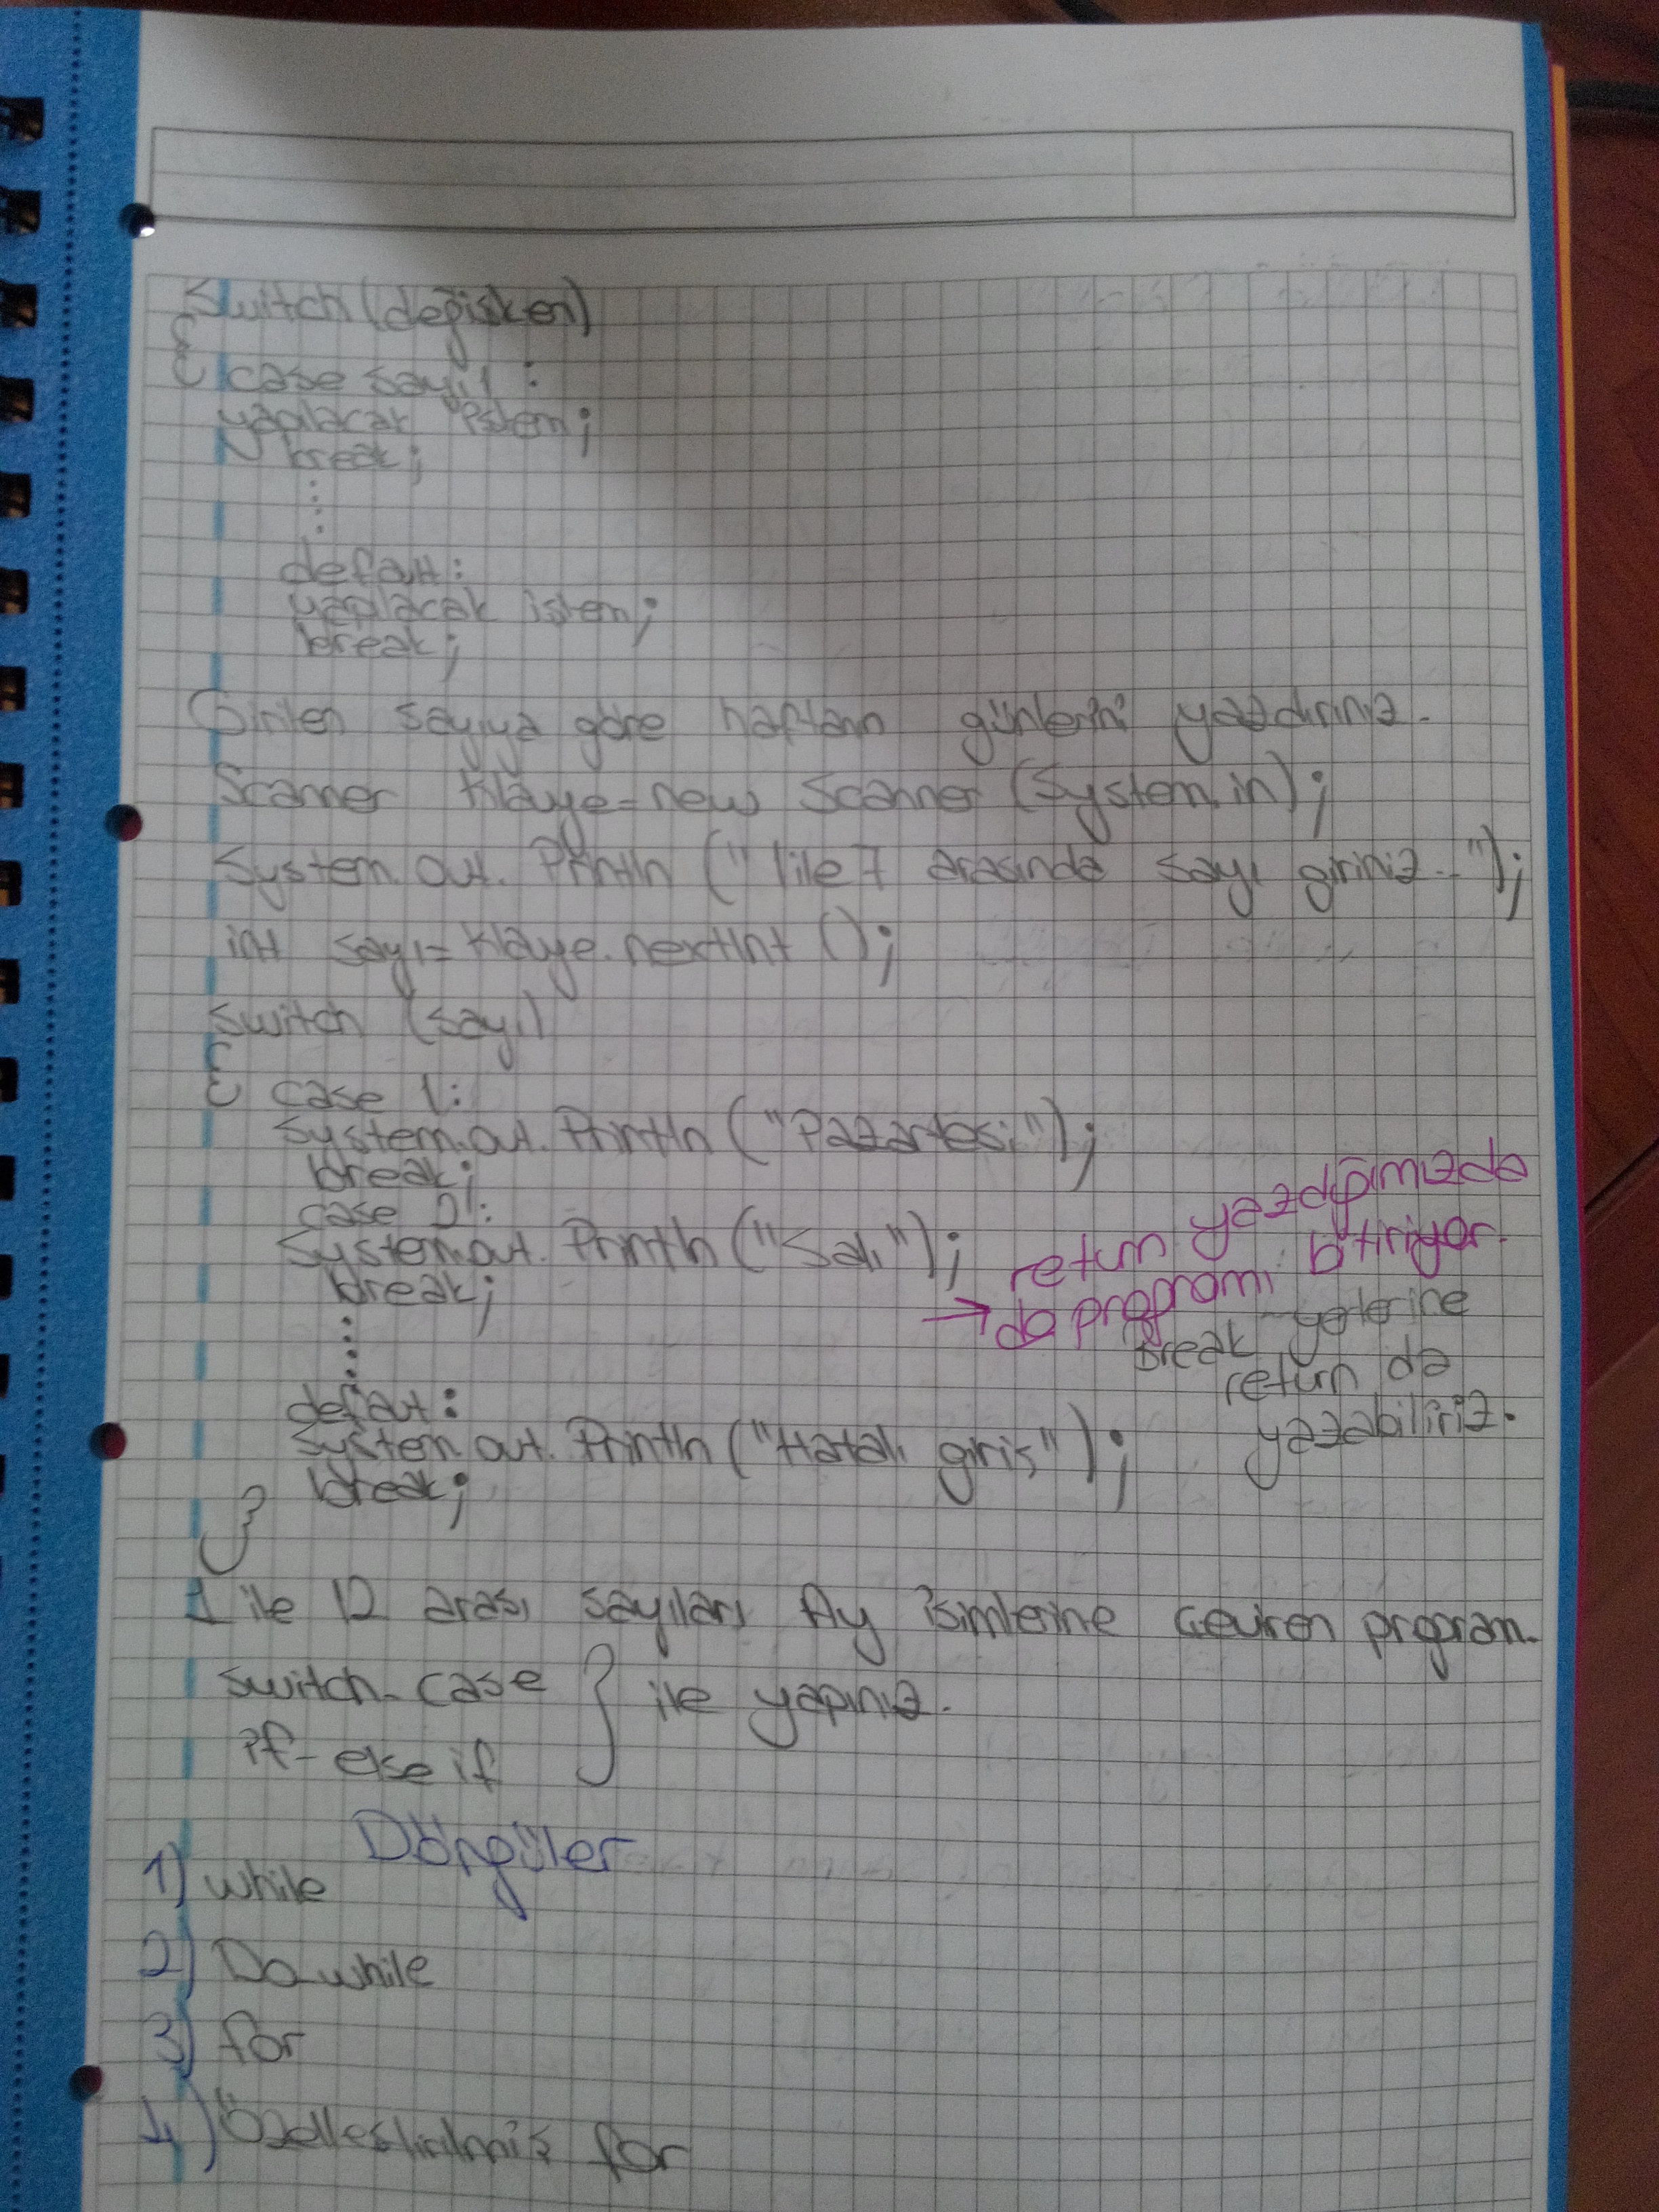 Switch (değişken)
{ case sayı1 :
yapılacak işlem;
break;
⋮
default:
yapılacak işlem;
break;
Girilen sayıya göre haftanın günlerini yazdırınız.
Scanner klavye = new Scanner (System.in);
System.out.Println ("1 ile 7 arasında sayı giriniz..");
int sayı = klavye.nextInt ();
switch (sayı)
{ case 1:
System.out.Println ("Pazartesi");
break;
case 2:
System.out.Println ("Salı");
break;
⋮
return yazdığımızda
→ da programı bitiriyor.
break yelerine
return da
yazabiliriz.
defaut:
System.out.Println ("Hatalı giriş");
break;
}
1 ile 12 arası sayıları Ay isimlerine çeviren program.
switch-case
if-else if } ile yapınız.
Döngüler
1) while
2) Do-while
3) for
4) Özelleştirilmiş for